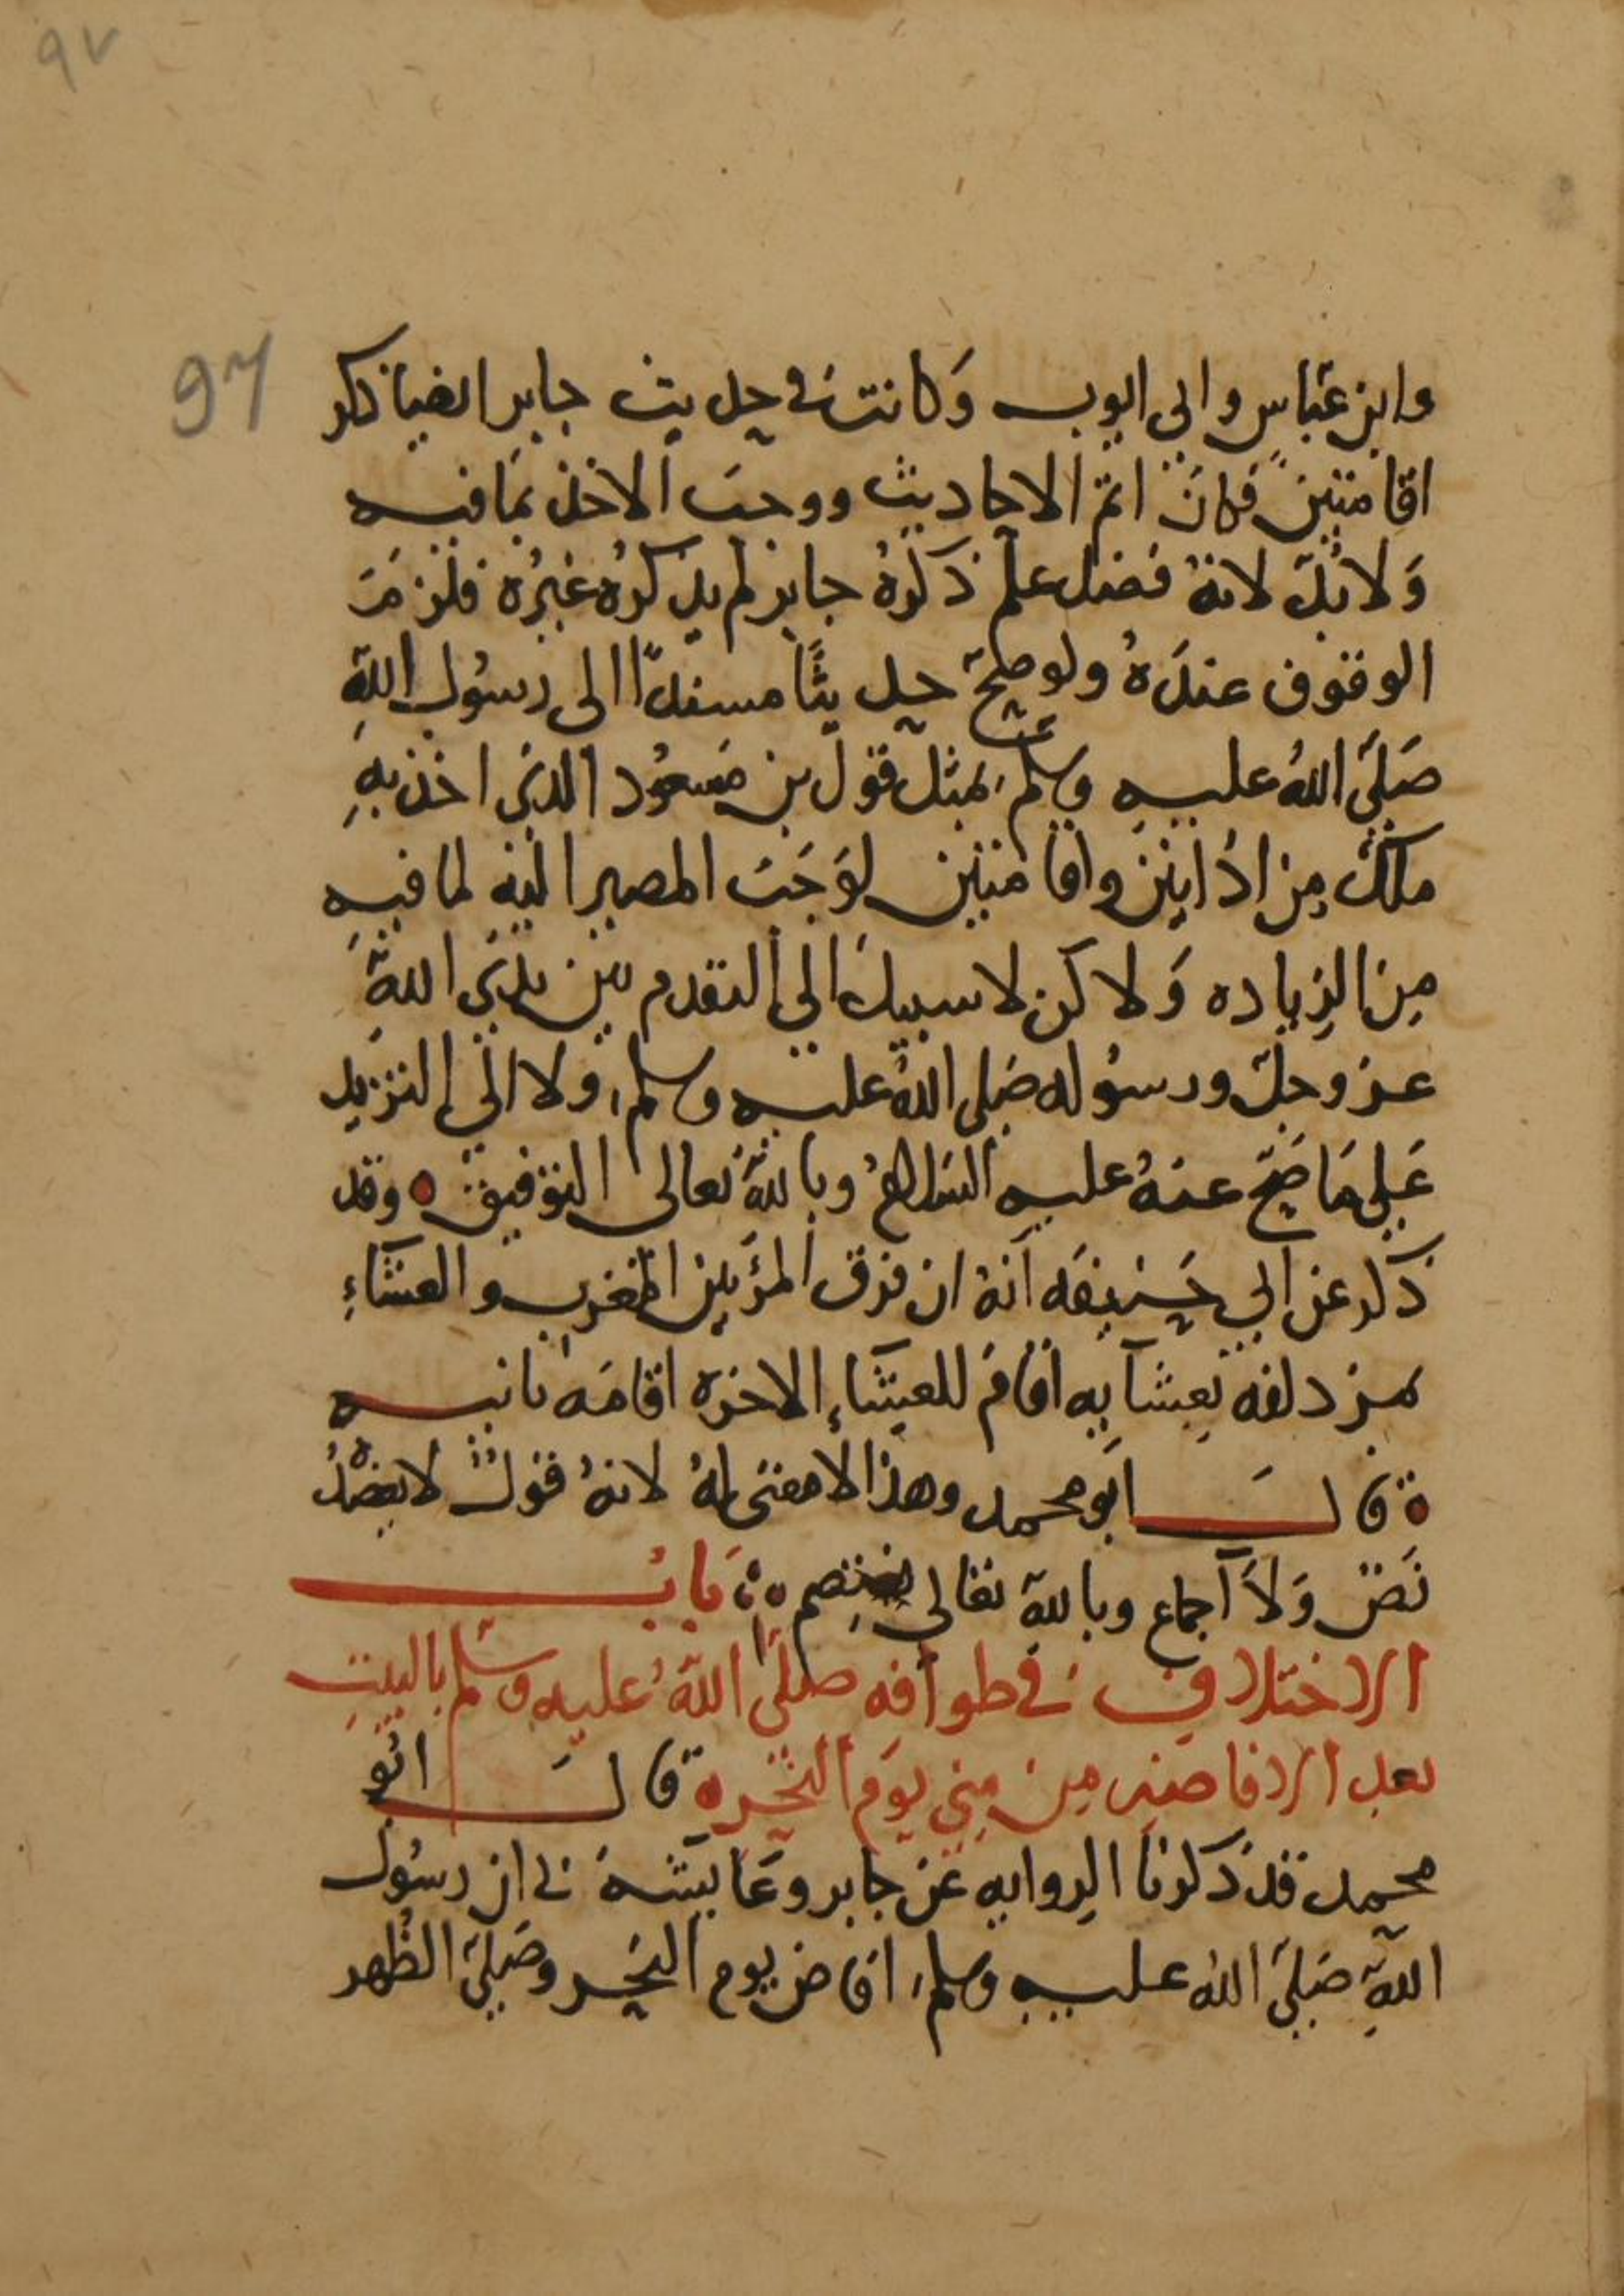 ٩٧
97
وابن عباس وابى ايوب وكانت فى حديث جابر ايضا ذكر
اقامتين فكان اتم الاحاديث ووجب الاخذ بما فيه
ولا بد لانه فضل علم ذكره جابر لم يذكره غيره فلزم
الوقوف عنده ولو صح حديثا مسندا الى رسول الله
صلى الله عليه وسلم بمثل قول بن مسعود الذى اخذ به
ملك من اذانين واقامتين لوجب المصير اليه لما فيه
من الزياده ولاكن لا سبيل الى التقدم بين يدى الله
عز وجل ورسوله صلى الله عليه وسلم ولا الى التزيد
على ما صح عنه عليه السلام وبالله تعالى التوفيق وقد
ذكر عن ابي حنيفه انه ان فرق المرؤ بين المغرب والعشاء
بمزدلفه بعشايه اقام للعشاء الاخره اقامه ثانيه
قال ابو محمد وهذا لا معنى له لانه قول لا يعضده
نص ولا اجماع وبالله تعالى نعتصم باب
الاختلاف فى طوافه صلى الله عليه وسلم بالبيت
بعد الافاضه من منى يوم النحر قال ابو
محمد قد ذكرنا الروايه عن جابر وعايشه فى ان رسول
الله صلى الله عليه وسلم افاض يوم النحر وصلى الظهر